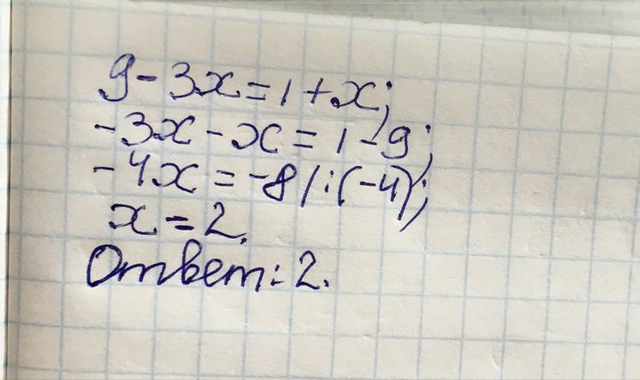 9 - 3x = 1 + x;
-3x - x = 1 - 9;
-4x = -8 / : (-4);
x = 2.
Ответ: 2.